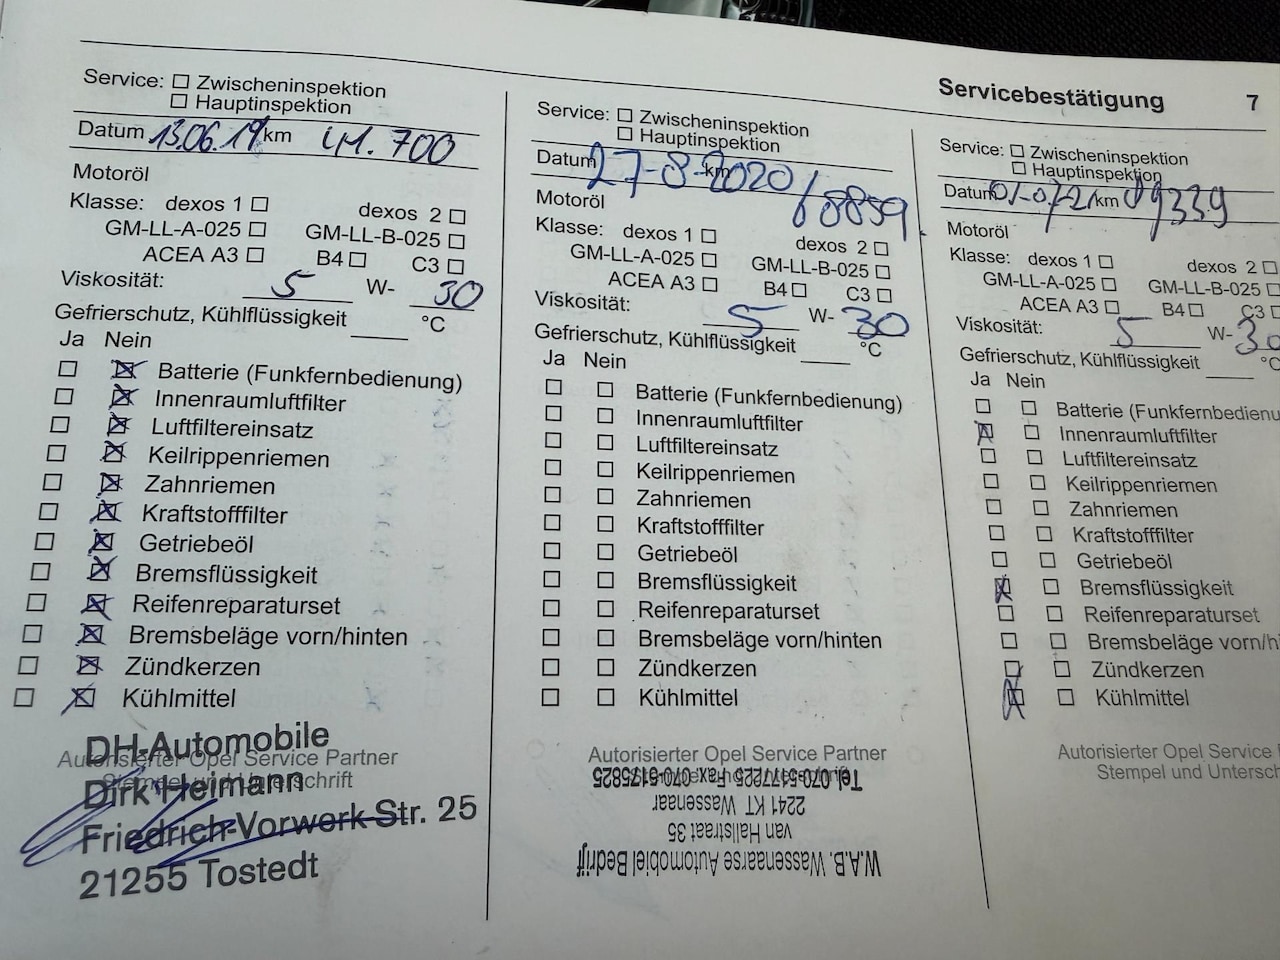 Servicebestätigung 7
Service: Zwischeninspektion
Hauptinspektion
Datum 13.06.19 km 41.700
Motoröl
Klasse: dexos 1 dexos 2
GM-LL-A-025 GM-LL-B-025
ACEA A3 B4 C3
Viskosität: 5 W- 30
Gefrierschutz, Kühlflüssigkeit °C
Ja Nein
Batterie (Funkfernbedienung)
Innenraumluftfilter
Luftfiltereinsatz
Keilrippenriemen
Zahnriemen
Kraftstofffilter
Getriebeöl
Bremsflüssigkeit
Reifenreparaturset
Bremsbeläge vorn/hinten
Zündkerzen
Kühlmittel
Autorisierter Opel Service Partner
Stempel und Unterschrift
DH-Automobile
Dirk Heimann
Friedrich-Vorwerk-Str. 25
21255 Tostedt
Service: Zwischeninspektion
Hauptinspektion
Datum 27-8-2020 km 68859
Motoröl
Klasse: dexos 1 dexos 2
GM-LL-A-025 GM-LL-B-025
ACEA A3 B4 C3
Viskosität: 5 W- 30
Gefrierschutz, Kühlflüssigkeit °C
Ja Nein
Batterie (Funkfernbedienung)
Innenraumluftfilter
Luftfiltereinsatz
Keilrippenriemen
Zahnriemen
Kraftstofffilter
Getriebeöl
Bremsflüssigkeit
Reifenreparaturset
Bremsbeläge vorn/hinten
Zündkerzen
Kühlmittel
Autorisierter Opel Service Partner
W.A.B. Wassenaarse Automobiel Bedrijf
van Hallstraat 35
2241 KT Wassenaar
Tel. 070-5177225 Fax 070-5175825
Service: Zwischeninspektion
Hauptinspektion
Datum 01-07-21 km 89339
Motoröl
Klasse: dexos 1 dexos 2
GM-LL-A-025 GM-LL-B-025
ACEA A3 B4 C3
Viskosität: 5 W- 30
Gefrierschutz, Kühlflüssigkeit °C
Ja Nein
Batterie (Funkfernbedienu
Innenraumluftfilter
Luftfiltereinsatz
Keilrippenriemen
Zahnriemen
Kraftstofffilter
Getriebeöl
Bremsflüssigkeit
Reifenreparaturset
Bremsbeläge vorn/h
Zündkerzen
Kühlmittel
Autorisierter Opel Service
Stempel und Untersch